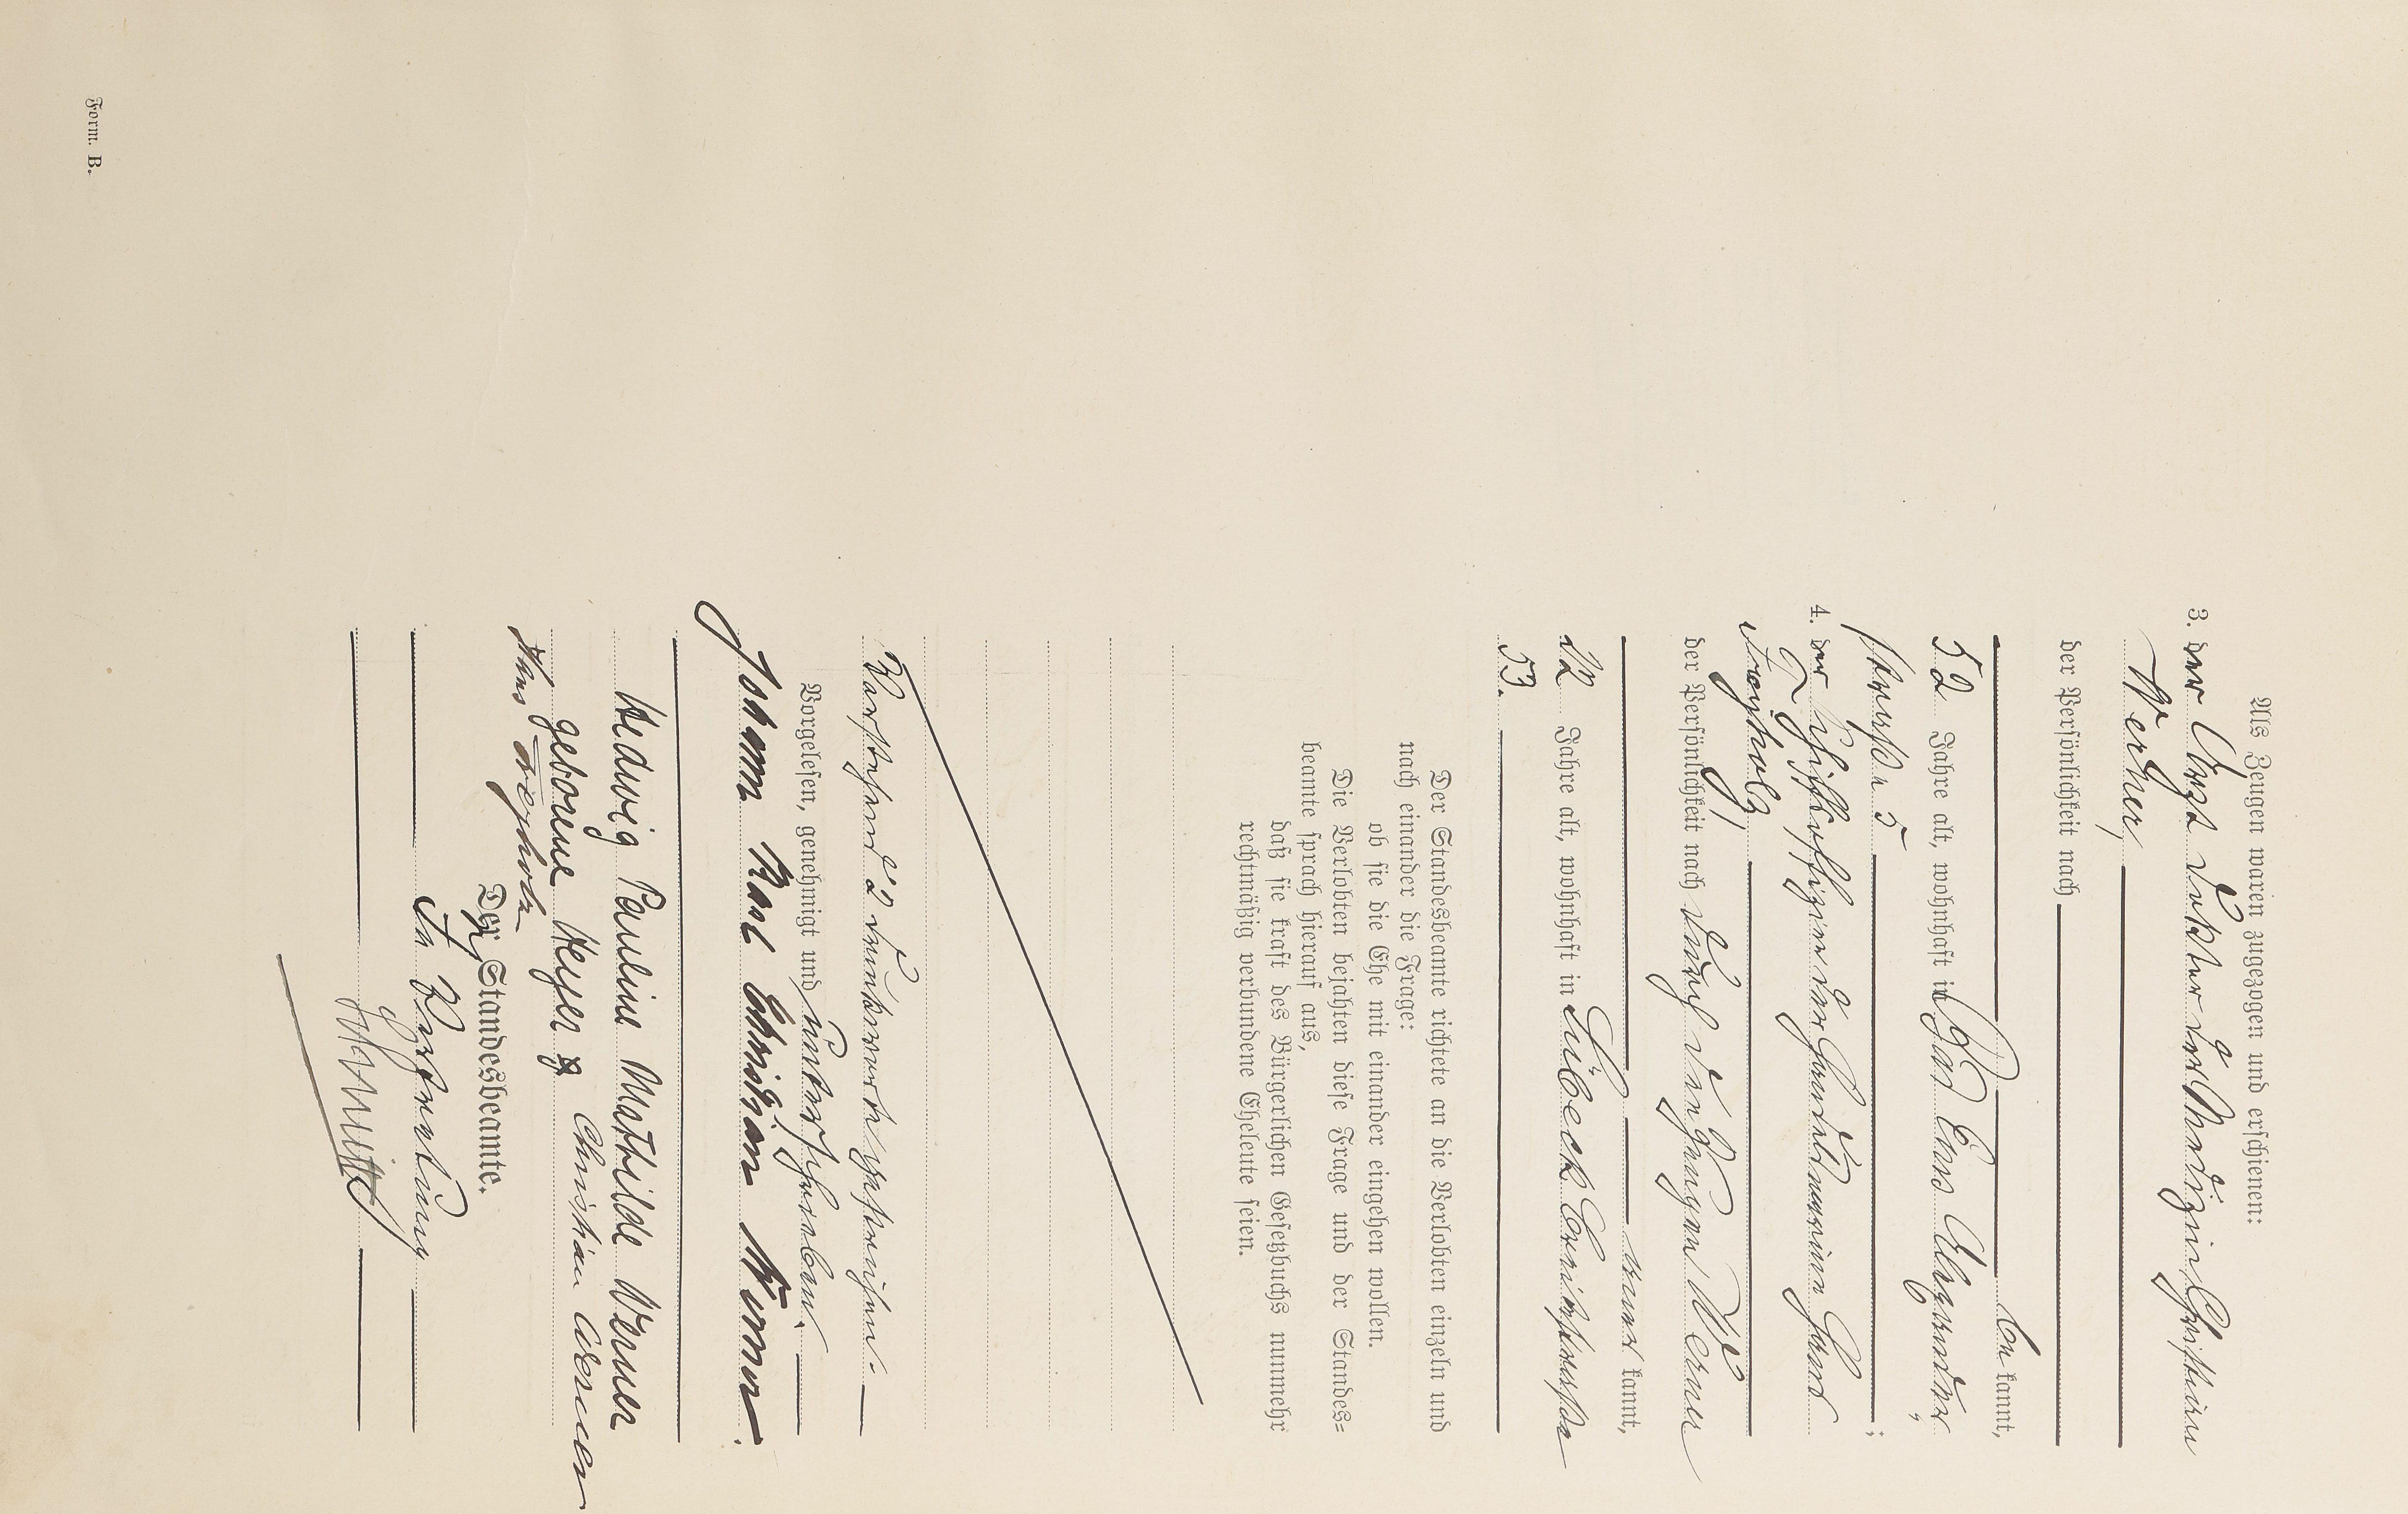 Als Zeugen waren zugezogen und erschienen:
3. der Arzt Doktor der Medizin Christian
Werner,
der Persönlichkeit nach
be kannt,
52 Jahre alt, wohnhaft in Bad Ems Alexander,
straße 5;
4. der Schiffsoffizier der Handelsmarine Hans
Treyholz,
der Persönlichkeit nach durch den Zeugen Werner
aner kannt,
22 Jahre alt, wohnhaft in Lübeck
53.
Der Standesbeamte richtete an die Verlobten einzeln und
nach einander die Frage:
ob sie die Ehe mit einander eingehen wollen.
Die Verlobten bejahten diese Frage und der Standes-
beamte sprach hierauf aus,
daß sie kraft des Bürgerlichen Gesetzbuchs nunmehr
rechtmäßig verbundene Eheleute seien.
Vorstehend 2 Druckworte gestrichen.
Vorgelesen, genehmigt und unterschrieben.
Johann Karl Christian Werner.
Hedwig Pauline Mathilde Werner
geborene Meyer Christian Werner
Hans Treyholz
Der Standesbeamte.
In Vertretung
Form. B.